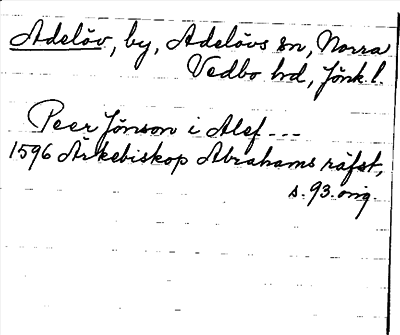 Adelöv, by, Adelövs sn, Norra
Vedbo hd, Jönk.l.
Peer Jönson i Alef ---
1596 Ärkebiskop Abrahams räfst,
s. 93. orig.